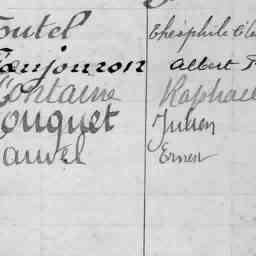 outel Théophile
oujouron Albert
ontaine Raphael
ouquet Julien
auvel Ernest